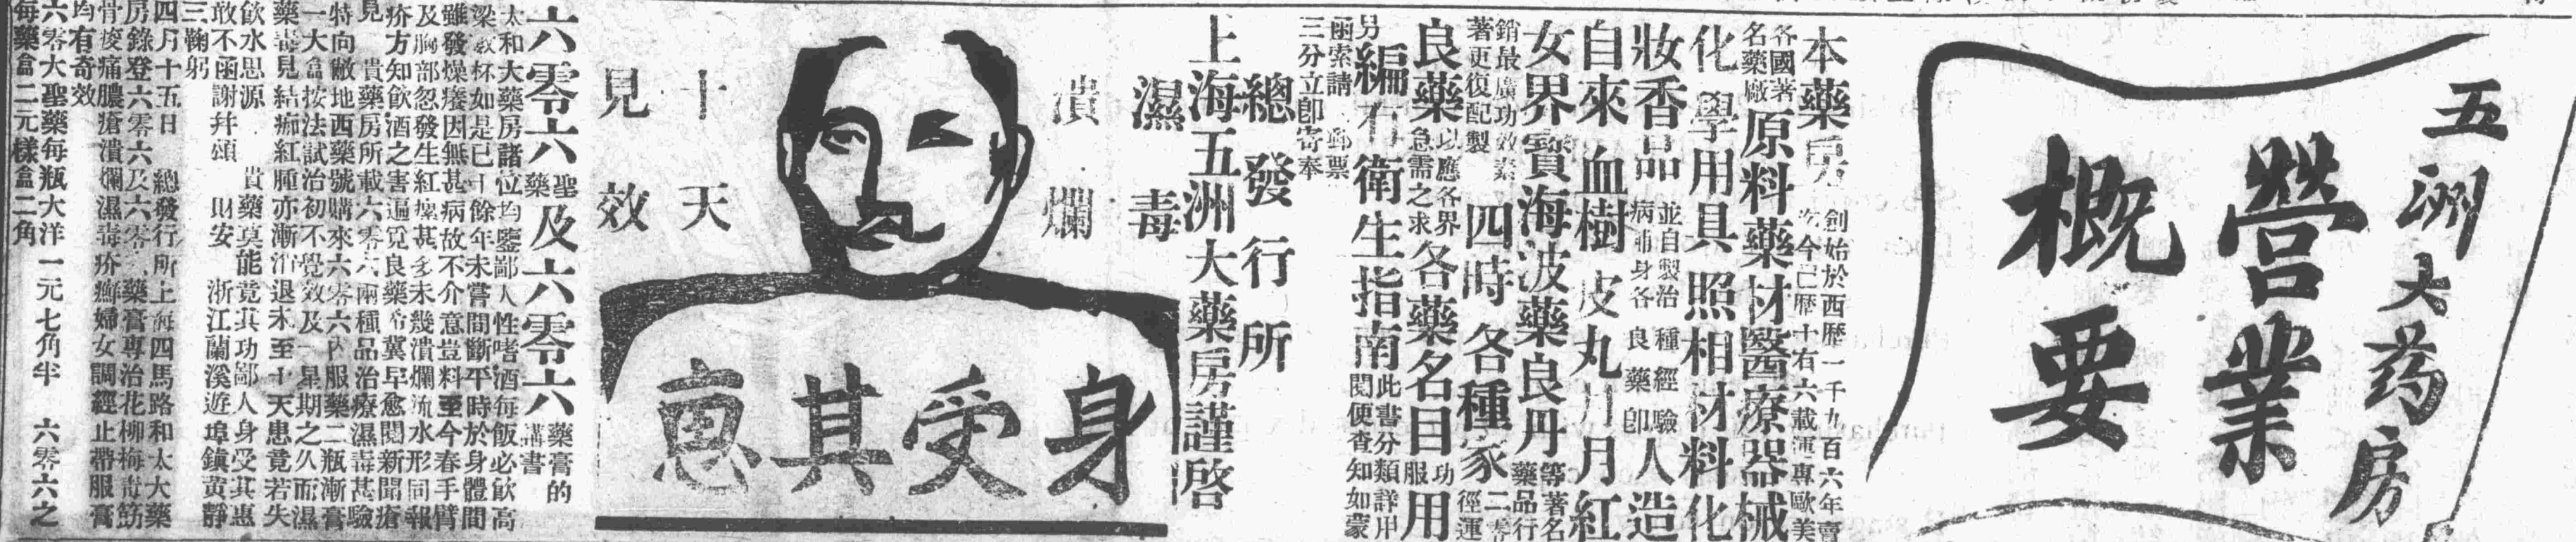 五洲大药房
營業
概要
本藥房創始於西歷一千九百六年
迄今已歷十有六載運專歐美
各國著名藥廠原料藥材醫療器械
化學用具照相材料化
妝香品並自製治種經驗
病補身各良藥卽人造
自來血樹皮丸月月紅
女界寶海波藥良丹等著名藥品行
銷最廣功效素著更復配製四時各種家
良藥以應各界急需之求各藥名目功服用
另編衛生指南此書分類詳
閱便查知如蒙
函索請郵票
三分立卽寄奉
總發行所
上海五洲大藥房謹啓
濕毒
潰爛
十天
見效
身受其惠
六零六聖藥及六零六藥膏的
太和大藥房諸位均鑒鄙人性嗜酒每飯必飲高
梁數杯如是已十餘年未嘗間斷平時於身體間
雖發燥癢因無甚病故不介意豈料至今春手臂
及胸部忽發生紅瘰甚多未幾潰爛流水形同報
疥方知飲酒之害遍覓良藥希冀早愈閱新聞瘡
見貴藥房所載六零六兩種品治療濕毒甚驗
特向敝地西藥號購來六零六內服藥二瓶漸膏
一大盒按法試治初不覺效及一星期之久而濕
藥毒見結痂紅腫亦漸消退未至十天患竟若失
飲水思源貴藥莫能竟其功鄙人身受其惠
敢不函謝幷頌財安浙江蘭溪遊埠鎮黃靜
三鞠躬
四月十五日總發行所上海四馬路和太大藥
房錄登六零六及六零六藥膏專治花柳梅毒筋
骨痠痛膿瘡潰爛濕毒疥癬婦女調經止帶服膏
均有奇效
六零大聖藥每瓶大洋一元七角半六零六之
每藥盒二元樣盒二角